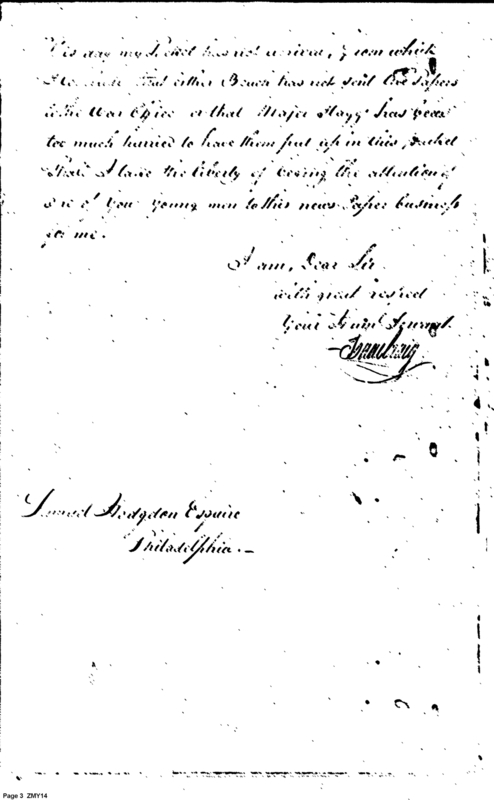 this day my Packet has not arrived, from which
I conclude that either Beach has not sent the Papers
to the War Office or that Major Stagg has been
too much hurried to have them put up in this packet
Shall I take the liberty of the attention of
one of your young men to this news Paper business
for me.
I am, Dear Sir
with great respect
Your Humb Servant
Isaac Craig
Samuel Hodgdon Esquire
Philadelphia. —
Page 3 ZMY14